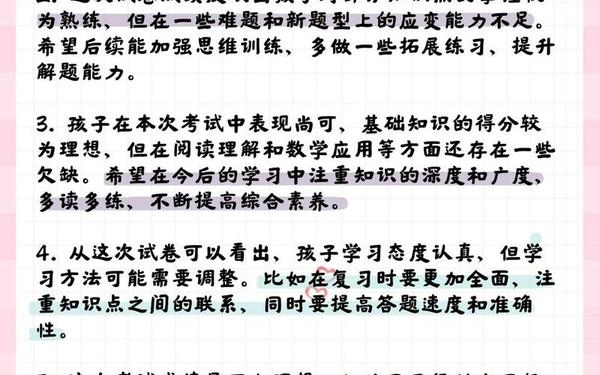 为熟练，但在一些难题和新题型上的应变能力不足。
希望后续能加强思维训练，多做一些拓展练习，提升
解题能力。
3. 孩子在本次考试中表现尚可，基础知识的得分较
为理想，但在阅读理解和数学应用等方面还存在一些
欠缺。希望在今后的学习中注重知识的深度和广度，
多读多练，不断提高综合素养。
4. 从这次试卷可以看出，孩子学习态度认真，但学
习方法可能需要调整。比如在复习时要更加全面，注
重知识点之间的联系，同时要提高答题速度和准确
性。